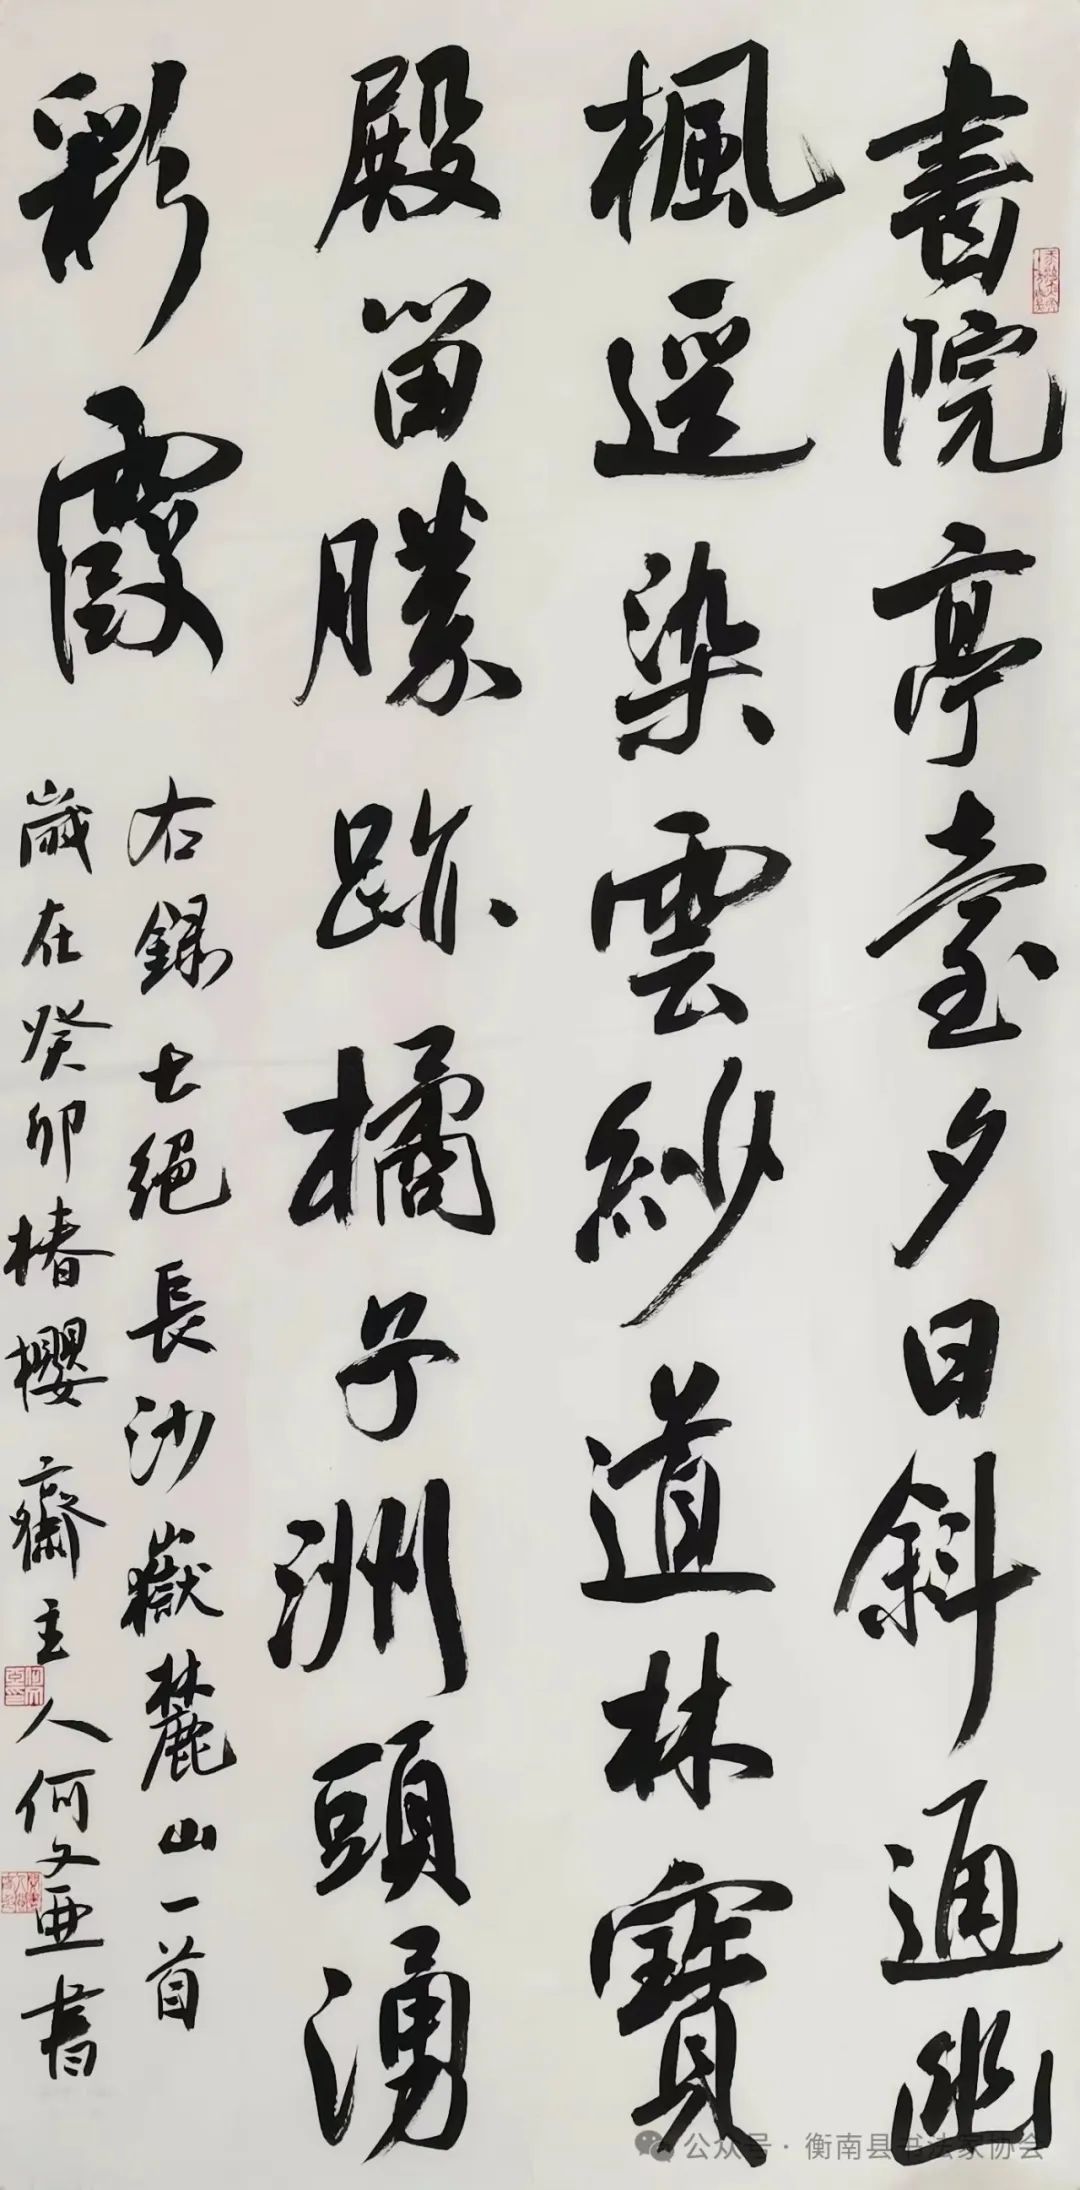 書院亭臺夕日斜通幽
楓逕染雲紗道林寶
殿留勝跡橘子洲頭湧
彩霞
右録七絕長沙嶽麓山一首
歲在癸卯椿櫻齋主人何文亜書
公众号·衡南县书法家协会